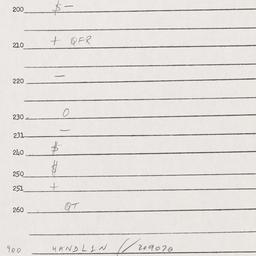 200 $-
210 + QFR
220 -
230 0
231 -
240 $
250 $
251 +
260 QT
900 HANDLIN // 209070